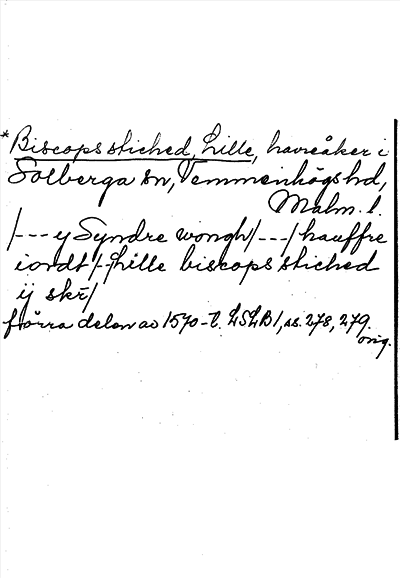 *Biscops stiched, Lille, havreåker i
Solberga sn, Vemmenhögs hd,
Malm. l.
/--- y Syndre wongh/---/ hauffre
iordt/--/Lille biscops stiched
ij skr̄/
förra delen av 1570-t. LSLB1, ss. 278, 279.
orig.